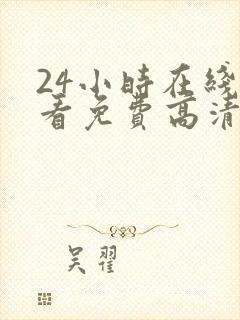 24小時在綫
看免費高清
吴翟